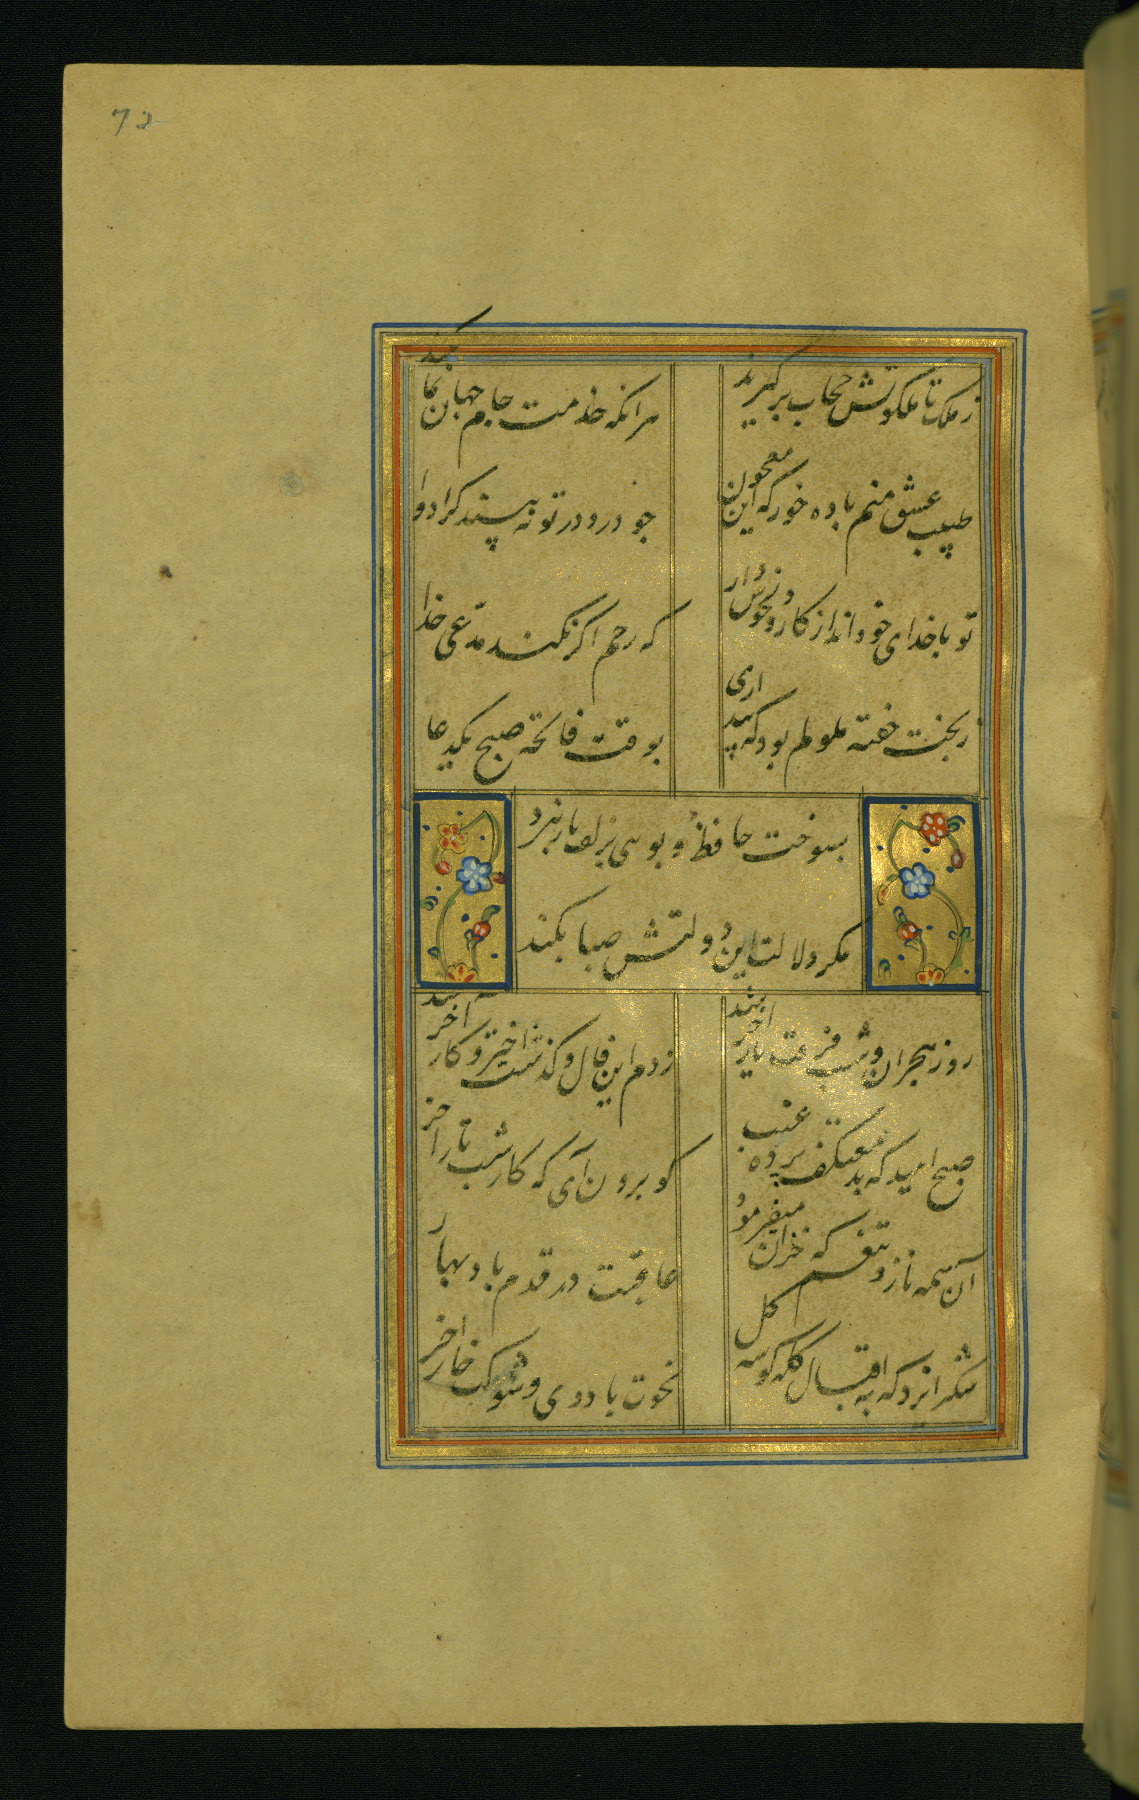 72
ز ملک تا ملکوتش حجاب برگیرند
هرانکه خدمت جام جهان نما بکند
طبیب عشق منم باده خور که این معجون
چو درد در تو نه بیند کرا دوا
تو با خدای خود انداز کار و دلخوش دار
که رحم اگر نکند مدعی خدا
ز بخت خفته ملولم بود که بیداری
بوقت فاتحه صبح یکدعا
بسوخت حافظ و بوی بزلف یار نبرد
مگر دلالت این دولتش صبا بکند
روز هجران و شب فرقت یار آخر شد
زدم این فال و گذشت اختر و کار آخر شد
صبح امید که بد معتکف پرده غیب
گو برون آی که کار شب تار آخر
آن همه ناز و تنعم که خزان میفرمود
عاقبت در قدم باد بهار
شکر ایزد که به اقبال کله گوشه گل
نخوت باد دی و شوکت خار آخر